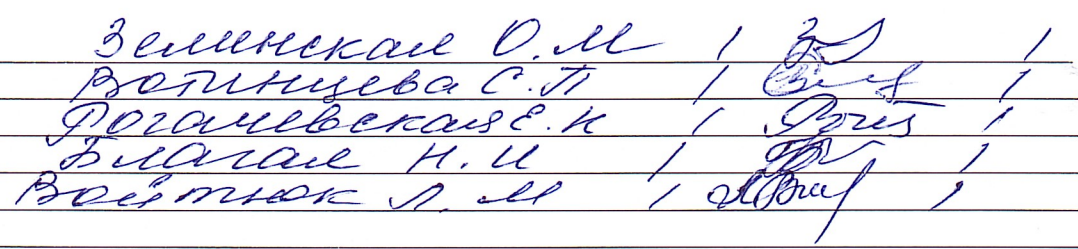 Зелинская О.М / /
Вотинцева С.П / /
Рогачевская Е.К / /
Благая Н.И / /
Войтюк Л.М / /